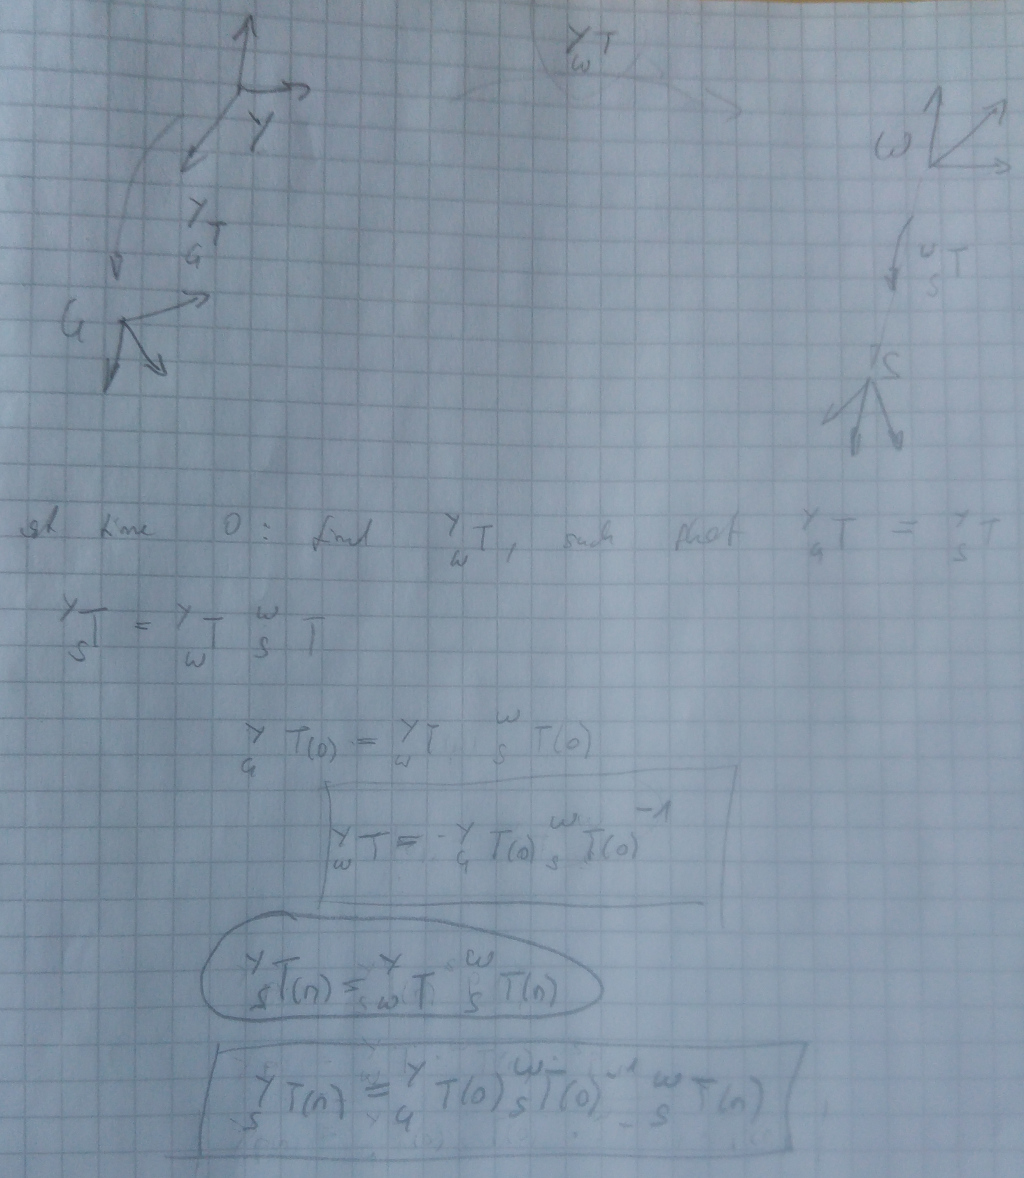 Y W T
Y
ω
Y G T
ω S T
G
S
at time 0: find Y ω T, such that Y G T = Y S T
Y S T = Y ω T ω S T
Y G T(0) = Y ω T ω S T(0)
Y ω T = Y G T(0) ω S T(0)⁻¹
Y S T(n) = Y ω T ω S T(n)
Y S T(n) = Y G T(0) ω S T(0)⁻¹ ω S T(n)